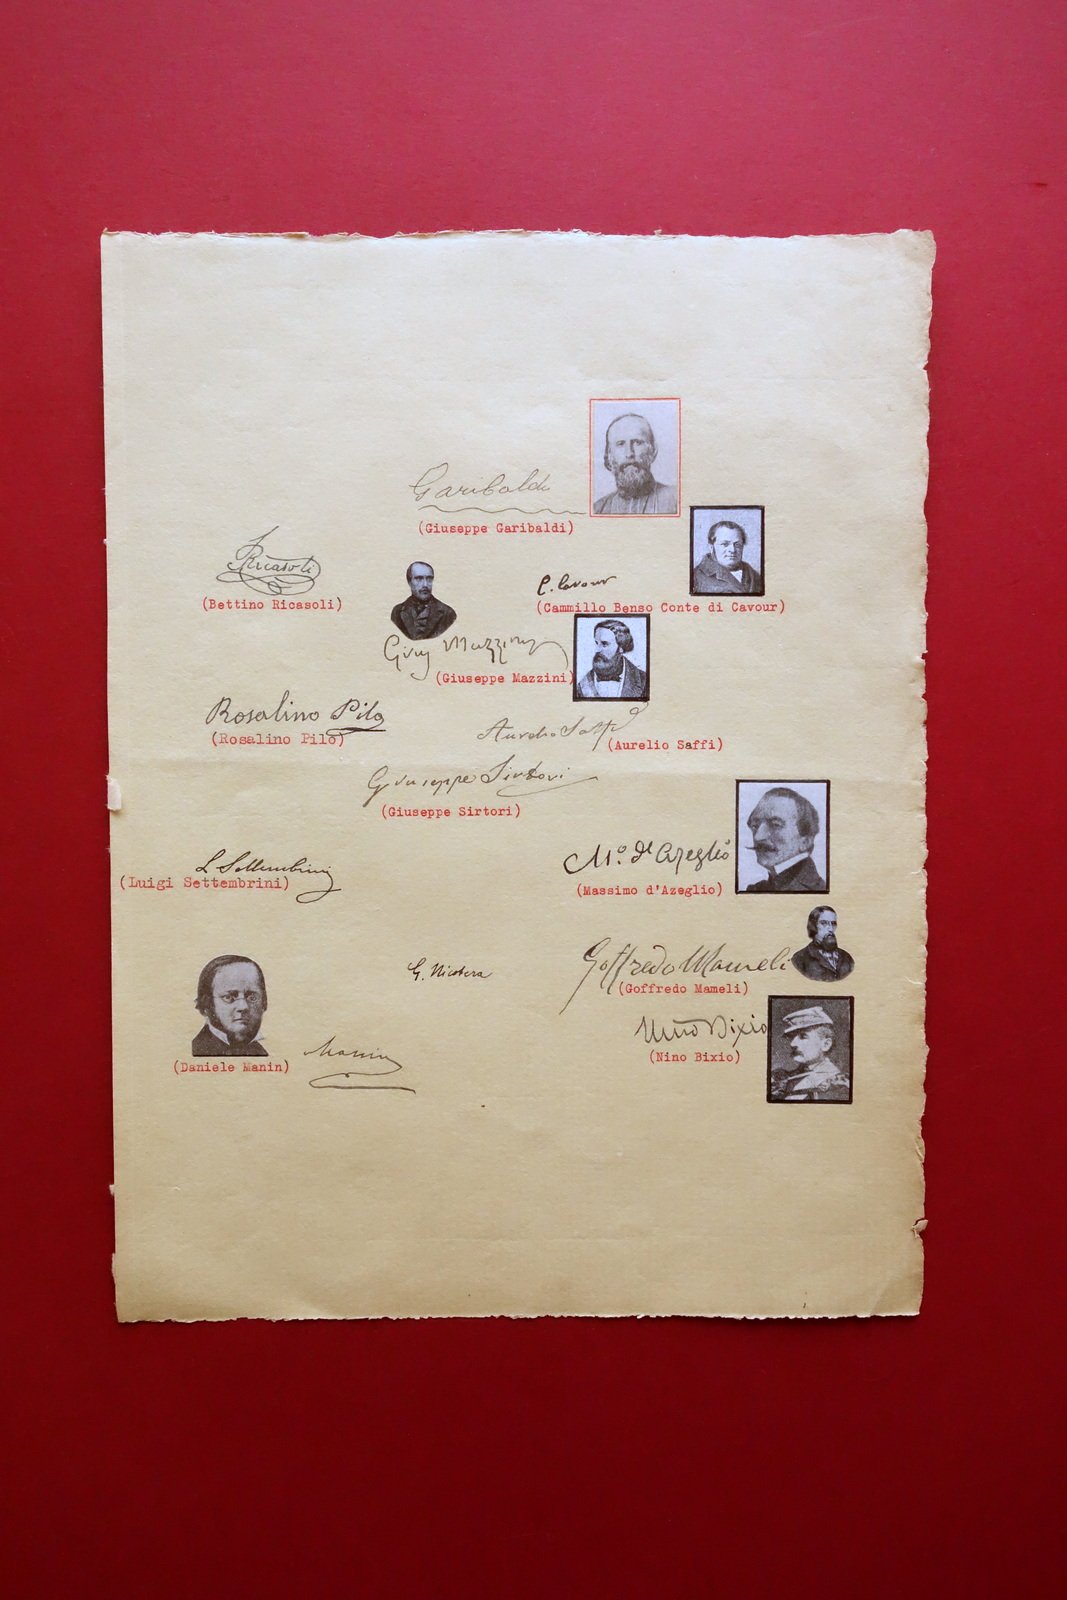 Garibaldi
(Giuseppe Garibaldi)
Ricasoli
(Bettino Ricasoli)
C. Cavour
(Cammillo Benso Conte di Cavour)
Gius Mazzini
(Giuseppe Mazzini)
Rosalino Pilo
(Rosalino Pilo)
Aurelio Saffi
(Aurelio Saffi)
Giuseppe Sirtori
(Giuseppe Sirtori)
L Settembrini
(Luigi Settembrini)
Mo. d'Azeglio
(Massimo d'Azeglio)
Goffredo Mameli
(Goffredo Mameli)
G. Nicotera
Nino Bixio
(Nino Bixio)
Manin
(Daniele Manin)